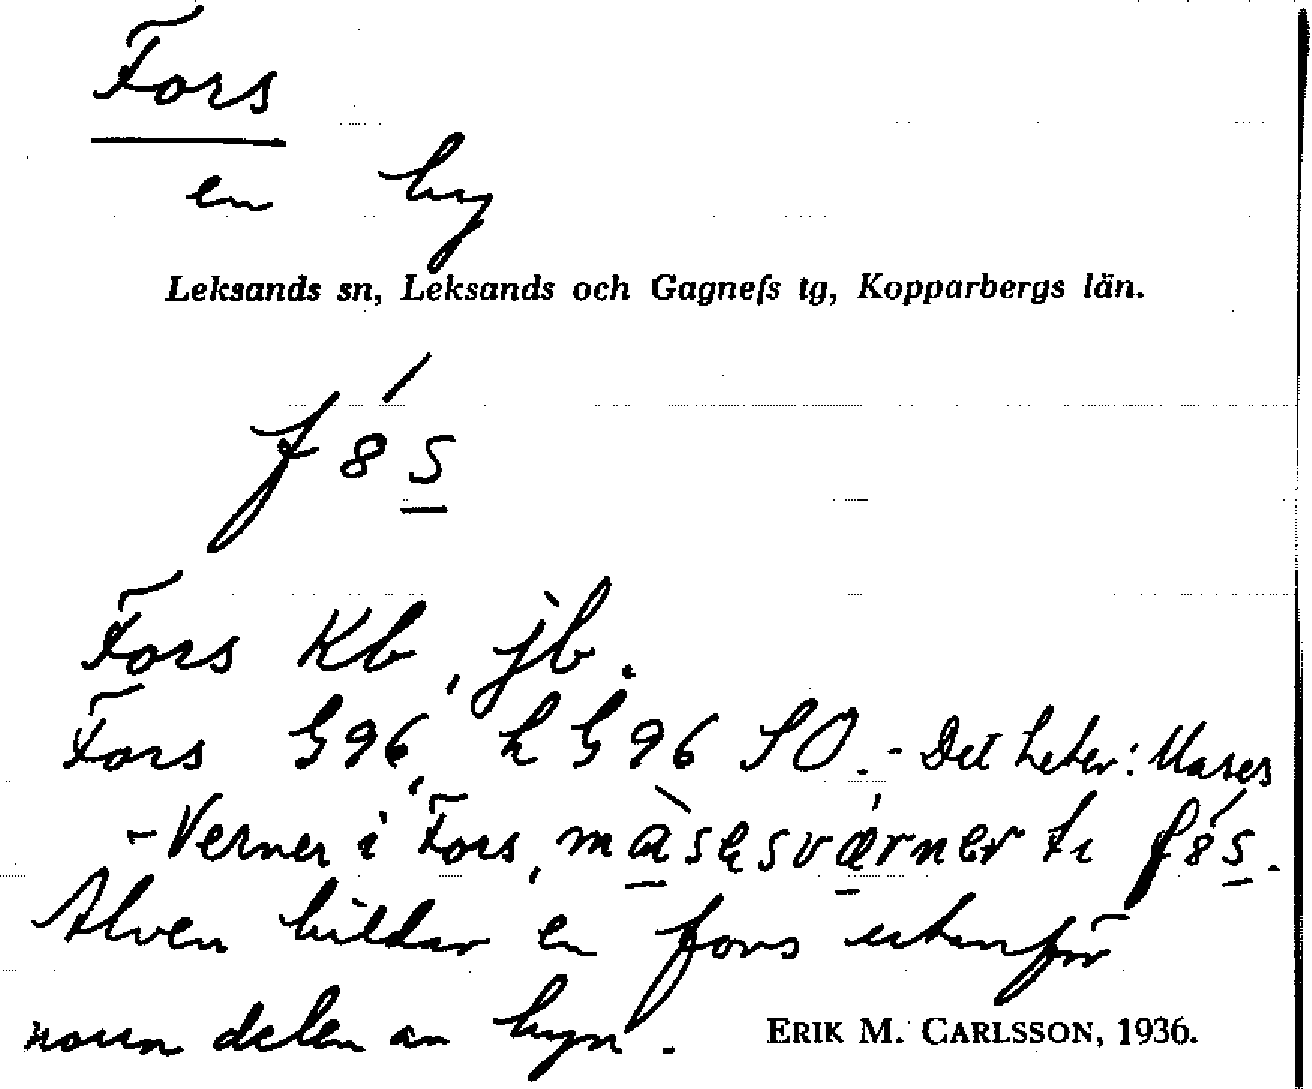 Fors
en by
Leksands sn, Leksands och Gagneſs tg, Kopparbergs län.
f8́s
Fors Kb, jb.
Fors G96, h G96 SO. - Det heter: Mases
-Verner i Fors, ti f8́s.
Älven bildar en fors utanför
norra delen av byn.
ERIK M. CARLSSON, 1936.